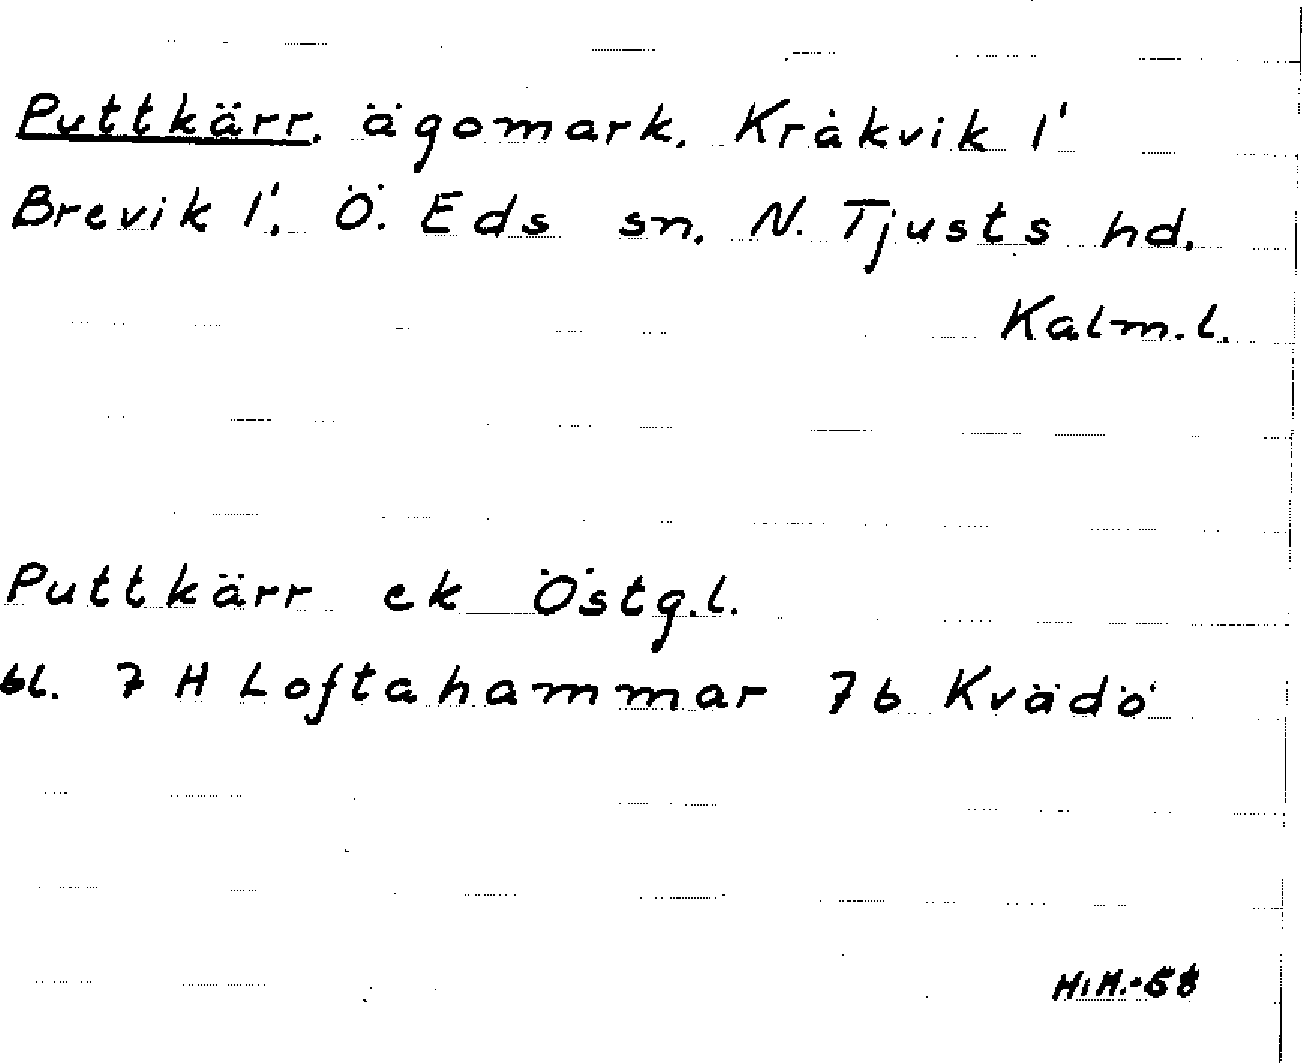 Puttkärr. ägomark. Kråkvik 1'
Brevik 1'. Ö. Eds sn. N. Tjusts hd.
Kalm.l.
Puttkärr ek Östg.l.
bl. 7 H Loftahammar 7b Kvädö
H.H.-58